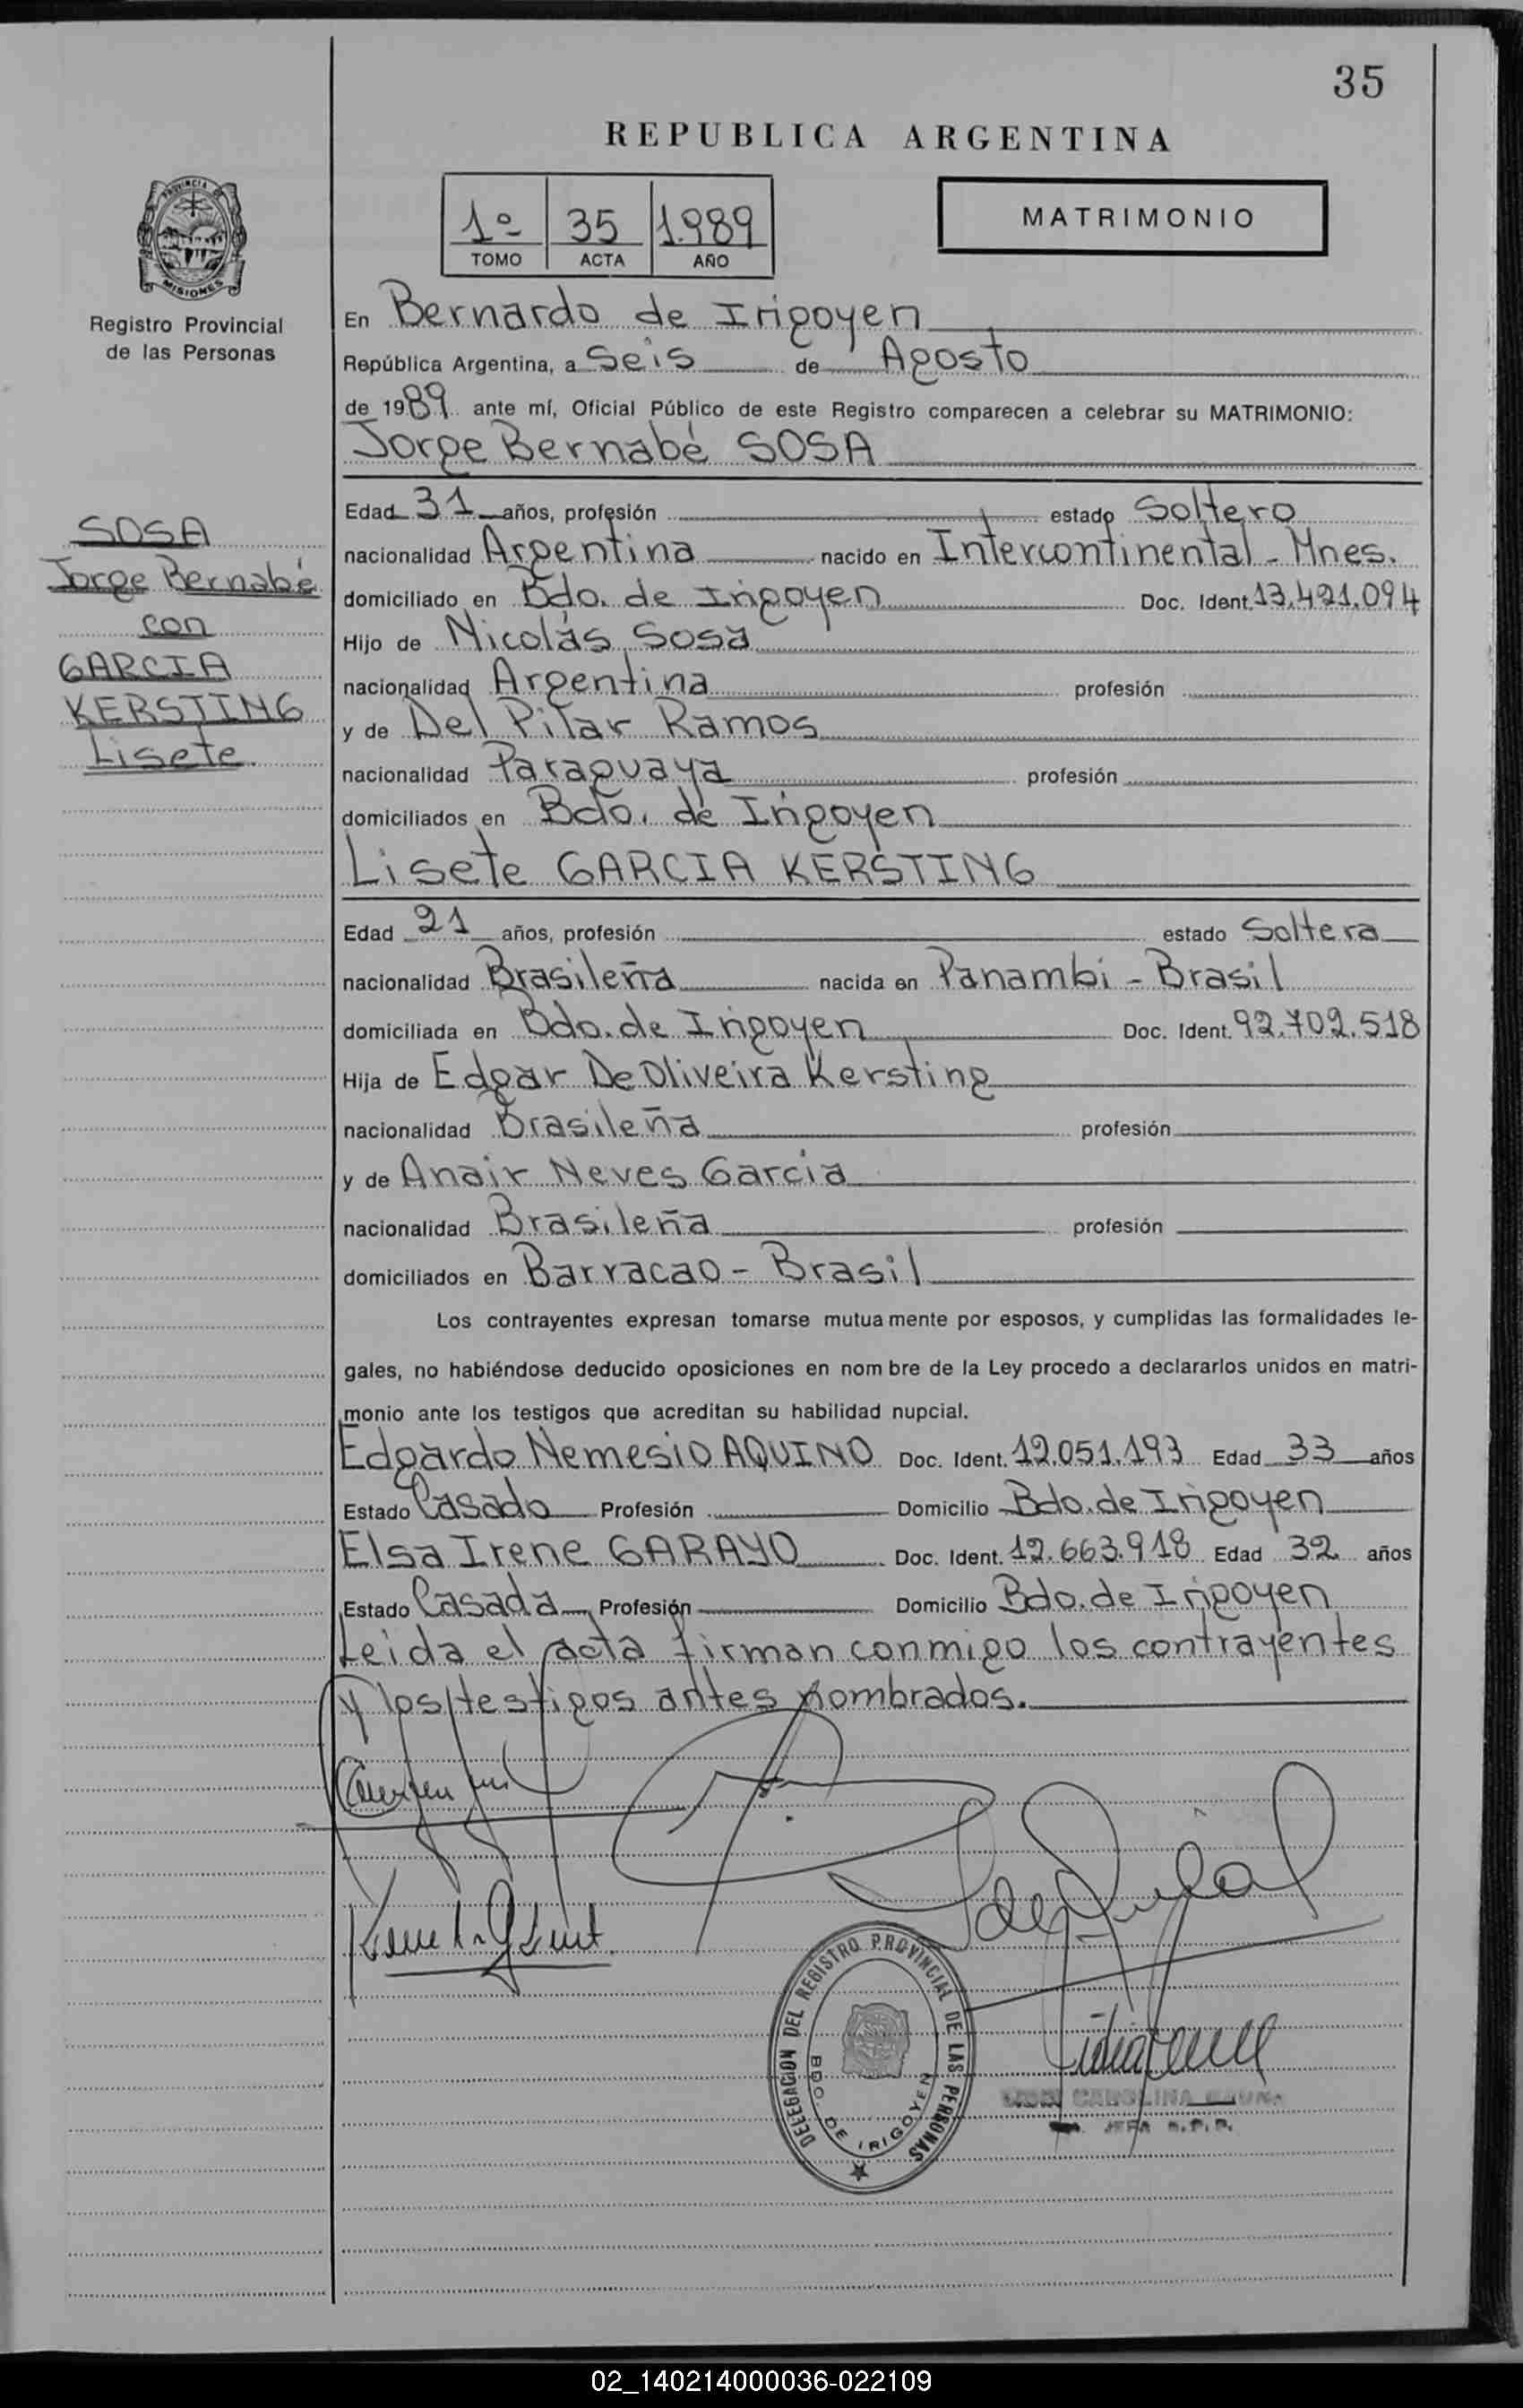 35
REPUBLICA ARGENTINA
PROVINCIA DE
MISIONES
Registro Provincial
de las Personas
1º 35 1.989
TOMO ACTA AÑO
MATRIMONIO
En Bernardo de Irigoyen
República Argentina, a Seis de Agosto
de 1989 ante mí, Oficial Público de este Registro comparecen a celebrar su MATRIMONIO:
Jorge Bernabé SOSA
Edad 31 años, profesión estado Soltero
nacionalidad Argentina nacido en Intercontinental - Mnes.
domiciliado en Bdo. de Irigoyen Doc. Ident. 13.421.094
Hijo de Nicolás Sosa
nacionalidad Argentina profesión
y de Del Pilar Ramos
nacionalidad Paraguaya profesión
domiciliados en Bdo. de Irigoyen
SOSA
Jorge Bernabé
con
GARCIA
KERSTING
Lisete
Lisete GARCIA KERSTING
Edad 21 años, profesión estado Soltera
nacionalidad Brasileña nacida en Panambi - Brasil
domiciliada en Bdo. de Irigoyen Doc. Ident. 92.702.518
Hija de Edgar De Oliveira Kersting
nacionalidad Brasileña profesión
y de Anair Neves Garcia
nacionalidad Brasileña profesión
domiciliados en Barracao - Brasil
Los contrayentes expresan tomarse mutuamente por esposos, y cumplidas las formalidades le-
gales, no habiéndose deducido oposiciones en nombre de la Ley procedo a declararlos unidos en matri-
monio ante los testigos que acreditan su habilidad nupcial.
Edgardo Nemesio AQUINO Doc. Ident. 12.051.193 Edad 33 años
Estado Casado Profesión Domicilio Bdo. de Irigoyen
Elsa Irene GARAYO Doc. Ident. 12.663.918 Edad 32 años
Estado Casada Profesión Domicilio Bdo. de Irigoyen
Leida el acta firman conmigo los contrayentes
y los testigos antes nombrados.
DELEGACION DEL REGISTRO PROVINCIAL DE LAS PERSONAS
BDO. DE IRIGOYEN
CAROLINA
JEFA R.P.P.
02_140214000036-022109